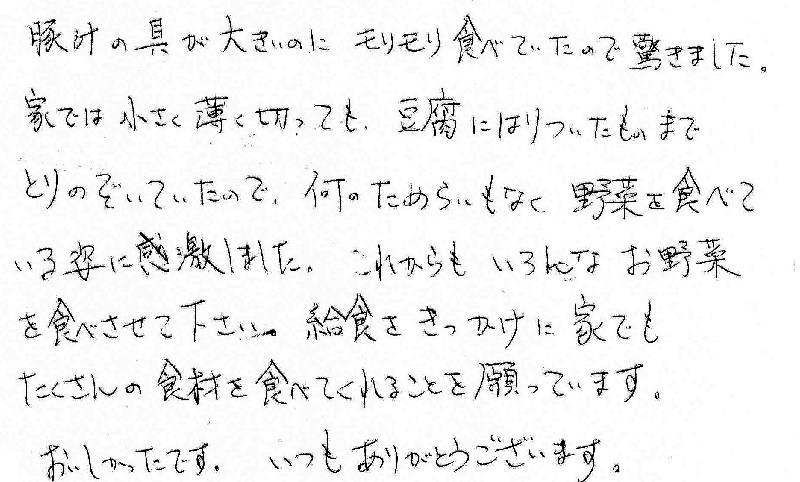 豚汁の具が大きいのに モリモリ食べていたので驚きました。
家では小さく薄く切っても、豆腐にはりついたものまで
とりのぞいていたので、何のためらいもなく 野菜を食べて
いる姿に感激しました。これからも いろんなお野菜
を食べさせて下さい。給食をきっかけに家でも
たくさんの食材を食べてくれることを願っています。
おいしかったです。 いつもありがとうございます。